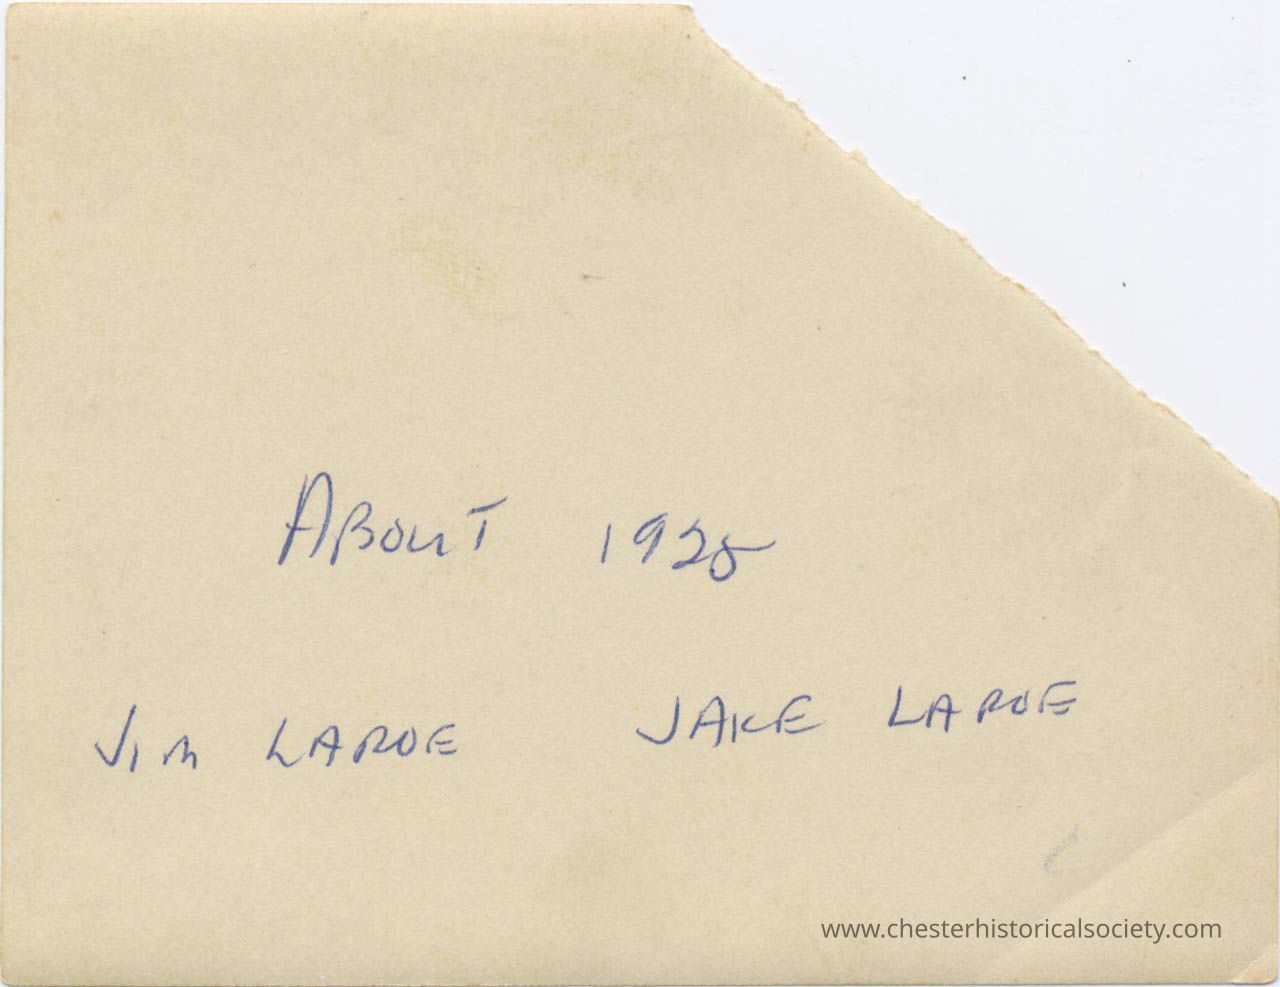 ABOUT 1925
JIM LAROE JAKE LAROE
www.chesterhistoricalsociety.com